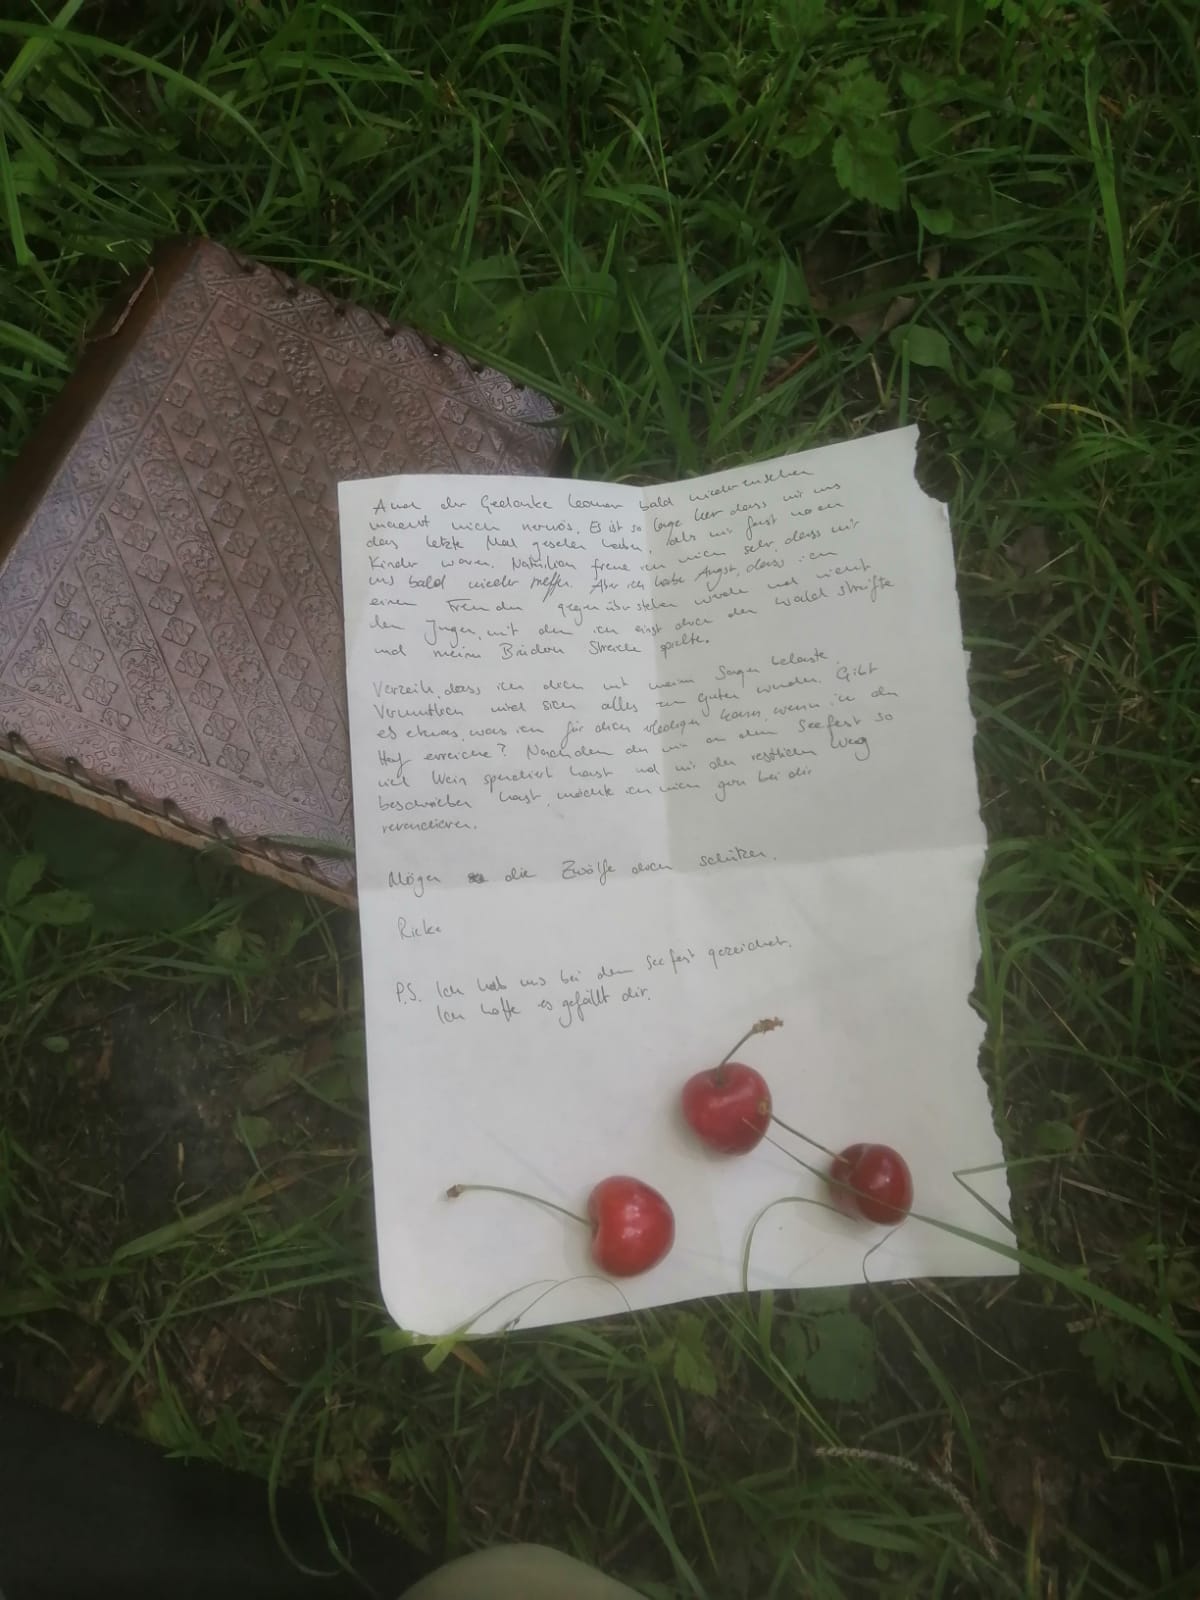 Auch der Gedanke Leomar bald wiederzusehen
macht mich nervös. Es ist so lange her dass wir uns
das letzte Mal gesehen haben, als wir fast noch
Kinder waren. Natürlich freue ich mich sehr, dass wir
uns bald wieder treffen. Aber ich habe Angst, dass ich
einem Fremden gegenüber stehen werde und nicht
dem Jungen, mit dem ich einst durch den Wald streifte
und meinen Brüdern Streiche spielte.
Verzeih, dass ich dich mit meinen Sorgen belaste.
Vermutlich wird sich alles zum Guten wenden. Gibt
es etwas, was ich für dich erledigen kann, wenn ich den
Hof erreiche? Nachdem du mir an dem Seefest so
viel Wein spendiert hast und mir den restlichen Weg
beschrieben hast, möchte ich mich gern bei dir
revanchieren.
Mögen die Zwölfe dich schützen.
Rieke
P.S. Ich hab uns bei dem Seefest gezeichnet.
Ich hoffe es gefällt dir.